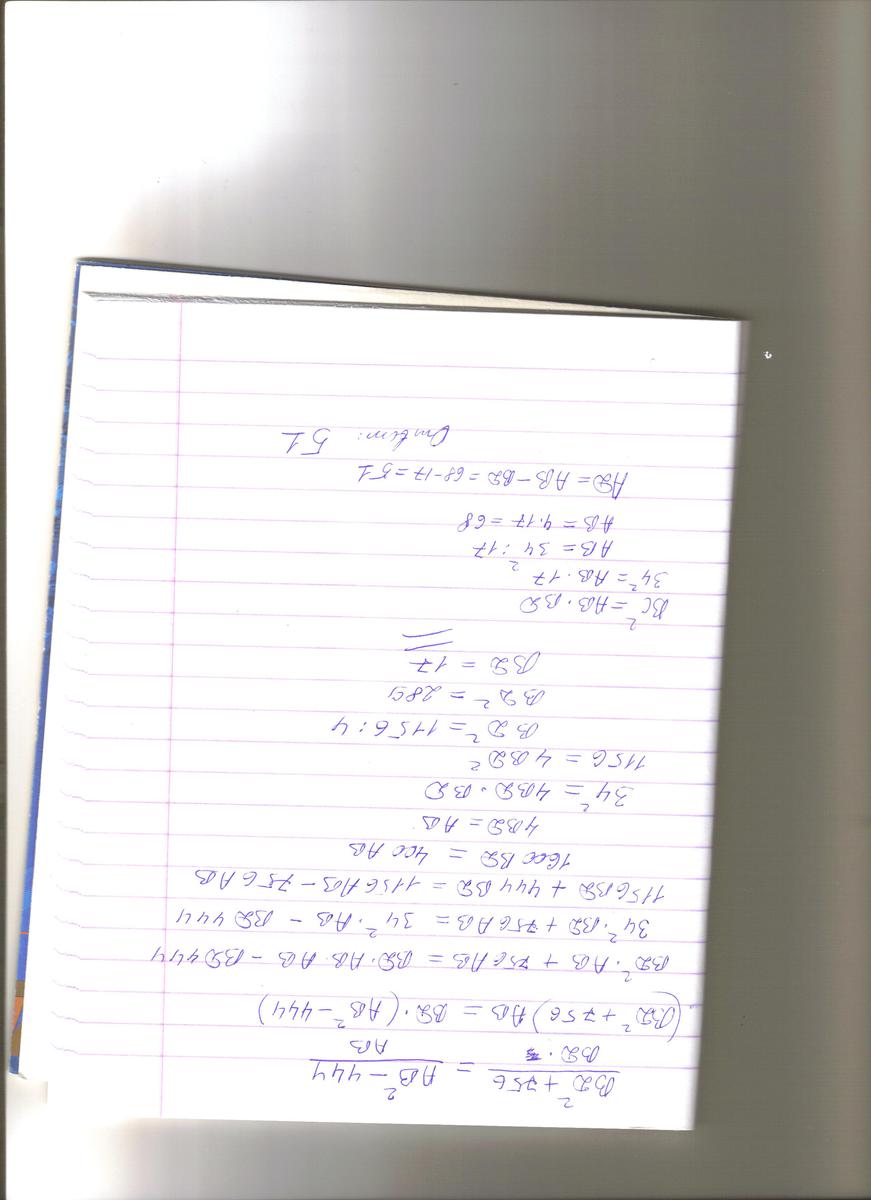 BD² + 756 / BD · = AB² - 444 / AB
(BD² + 756) AB = BD · (AB² - 444)
BD² · AB + 756 AB = BD · AB · AB - BD 444
34² · BD + 756 AB = 34² · AB - BD 444
1156 BD + 444 BD = 1156 AB - 756 AB
1600 BD = 400 AB
4BD = AB
34² = 4BD · BD
1156 = 4 BD²
BD² = 1156 : 4
BD² = 289
BD = 17
BC² = AB · BD
34² = AB · 17
AB = 34² : 17
AB = 4 · 17 = 68
AD = AB - BD = 68 - 17 = 51
Ответ: 51